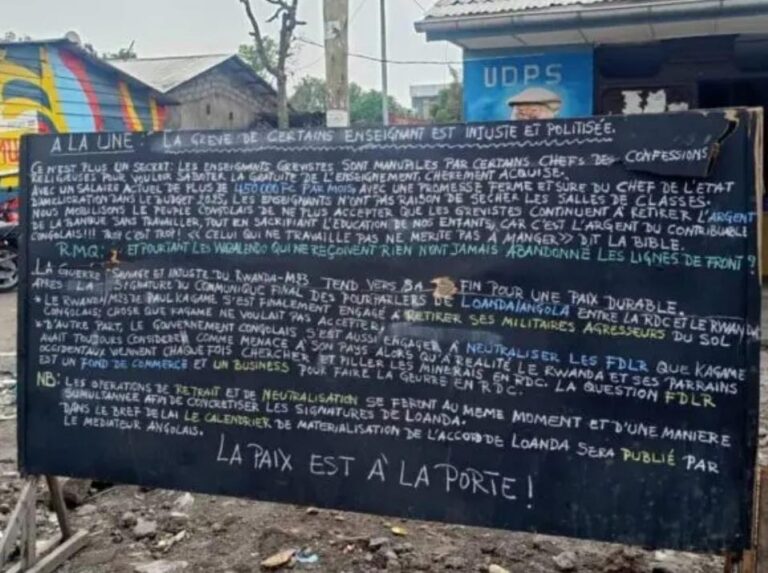 UDPS
A LA UNE : LA GREVE DE CERTAINS ENSEIGNANT EST INJUSTE ET POLITISÉE.
CE N'EST PLUS UN SECRET. LES ENSEIGNANTS GREVISTES SONT MANUPLES PAR CERTAINS CHEFS DES CONFESSIONS
RELIGIEUSES POUR VOULOIR SABOTER LA GRATUITE DE L'ENSEIGNEMENT CHEREMENT ACQUISE.
AVEC UN SALAIRE ACTUEL DE PLUS DE 450.000 FC PAR MOIS, AVEC UNE PROMESSE FERME ET SURE DU CHEF DE L'ETAT
D'AMELIORATION DANS LE BUDGET 2025, LES ENSEIGNANTS N'ONT PAS RAISON DE SECHER LES SALLES DE CLASSES.
NOUS MOBILISONS LE PEUPLE CONGOLAIS DE NE PLUS ACCEPTER QUE LES GREVISTES CONTINUENT À RETIRER L'ARGENT
DE LA BANQUE SANS TRAVAILLER, TOUT EN SACRIFIANT L'EDUCATION DE NOS ENFANTS, CAR C'EST L'ARGENT DU CONTRIBUABLE
CONGOLAIS!!! TROP C'EST TROP! << CELUI QUI NE TRAVAILLE PAS NE MERITE PAS À MANGER>> DIT LA BIBLE.
RMQ: ET POURTANT LES WAZALENDO QUI NE REÇOIVENT RIEN N'ONT JAMAIS ABANDONNÉ LES LIGNES DE FRONT ?
LA GUERRE SAUVAGE ET INJUSTE DU RWANDA-M23 TEND VERS SA FIN POUR UNE PAIX DURABLE.
APRES LA SIGNATURE DU COMMUNIQUE FINAL DES POURPARLERS DE LOANDA/ANGOLA ENTRE LA RDC ET LE RWANDA
* LE RWANDA/M23 DE PAUL KAGAME S'EST FINALEMENT ENGAGÉ A RETIRER SES MILITAIRES AGRESSEURS DU SOL
CONGOLAIS; CHOSE QUE KAGAME NE VOULAIT PAS ACCEPTER.
* D'AUTRE PART, LE GOUVERNEMENT CONGOLAIS S'EST AUSSI ENGAGÉ À NEUTRALISER LES FDLR QUE KAGAME
AVAIT TOUJOURS CONSIDERER COMME MENACE À SON PAYS ALORS QU'A REALITE LE RWANDA ET SES PARRAINS
OCCIDENTAUX VIENNENT CHAQUE FOIS CHERCHER ET PILLER LES MINERAIS EN RDC. LA QUESTION FDLR
EST UN FOND DE COMMERCE ET UN BUSINESS POUR FAIRE LA GEURRE EN R.D.C.
NB: LES OPERATIONS DE RETRAIT ET DE NEUTRALISATION SE FERONT AU MEME MOMENT ET D'UNE MANIERE
SUMULTANNEE AFIN DE CONCRETISER LES SIGNATURES DE LOANDA.
DANS LE BREF DELAI LE CALENDRIER DE MATERIALISATION DE L'ACCORD DE LOANDA SERA PUBLIÉ PAR
LE MEDIATEUR ANGOLAIS.
LA PAIX EST À LA PORTE !